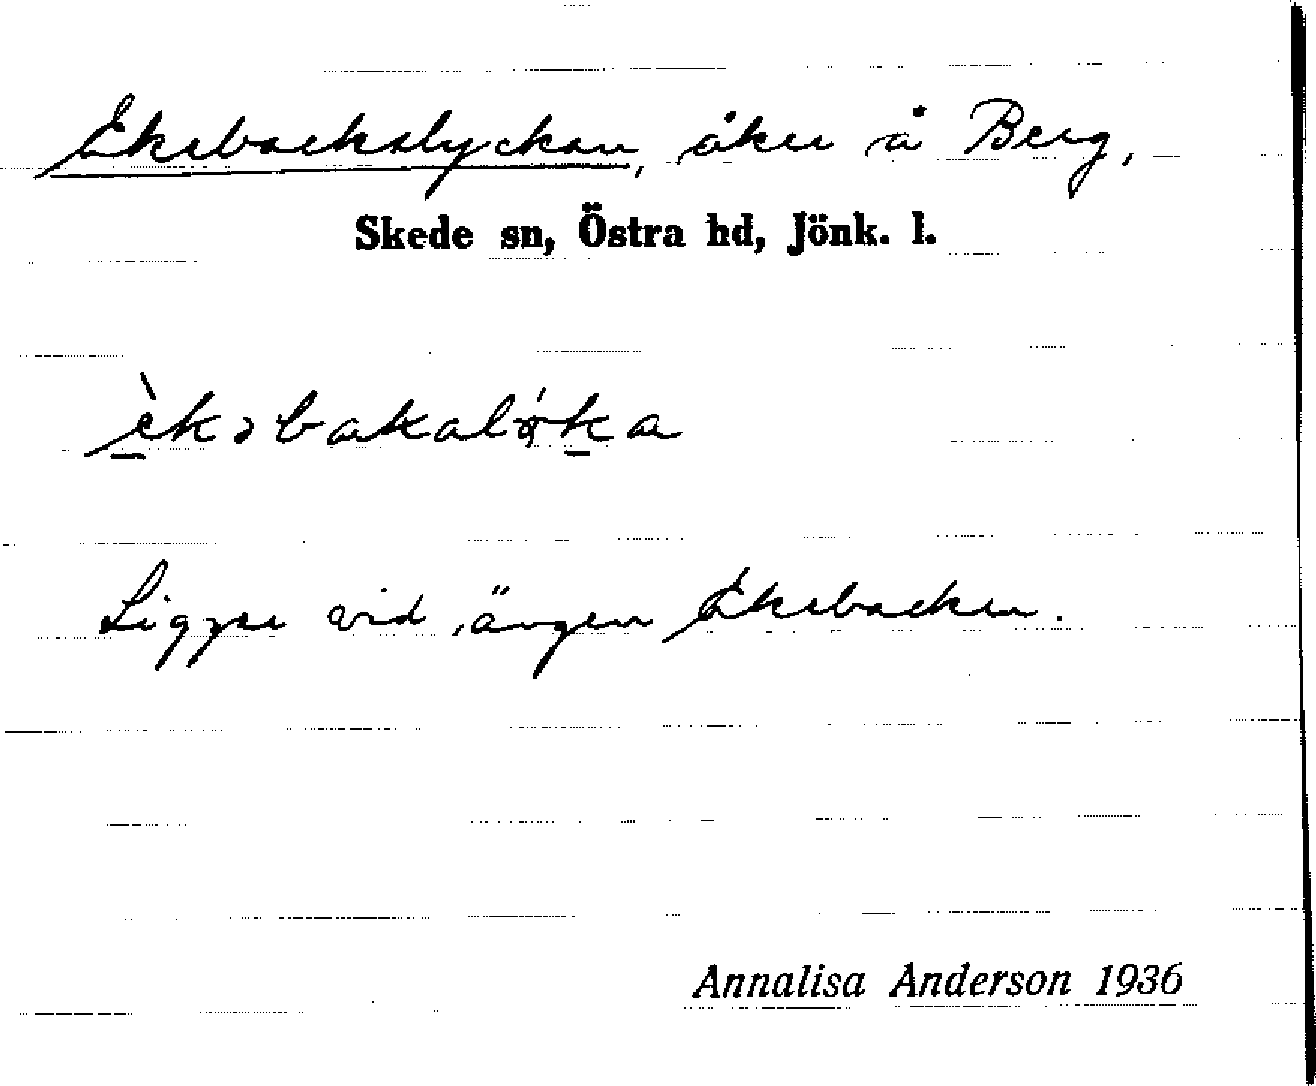 Ekebackslyckan, åker å Berg,
Skede sn, Östra hd, Jönk. l.
Ligger vid ängen Ekebacken.
Annalisa Anderson 1936